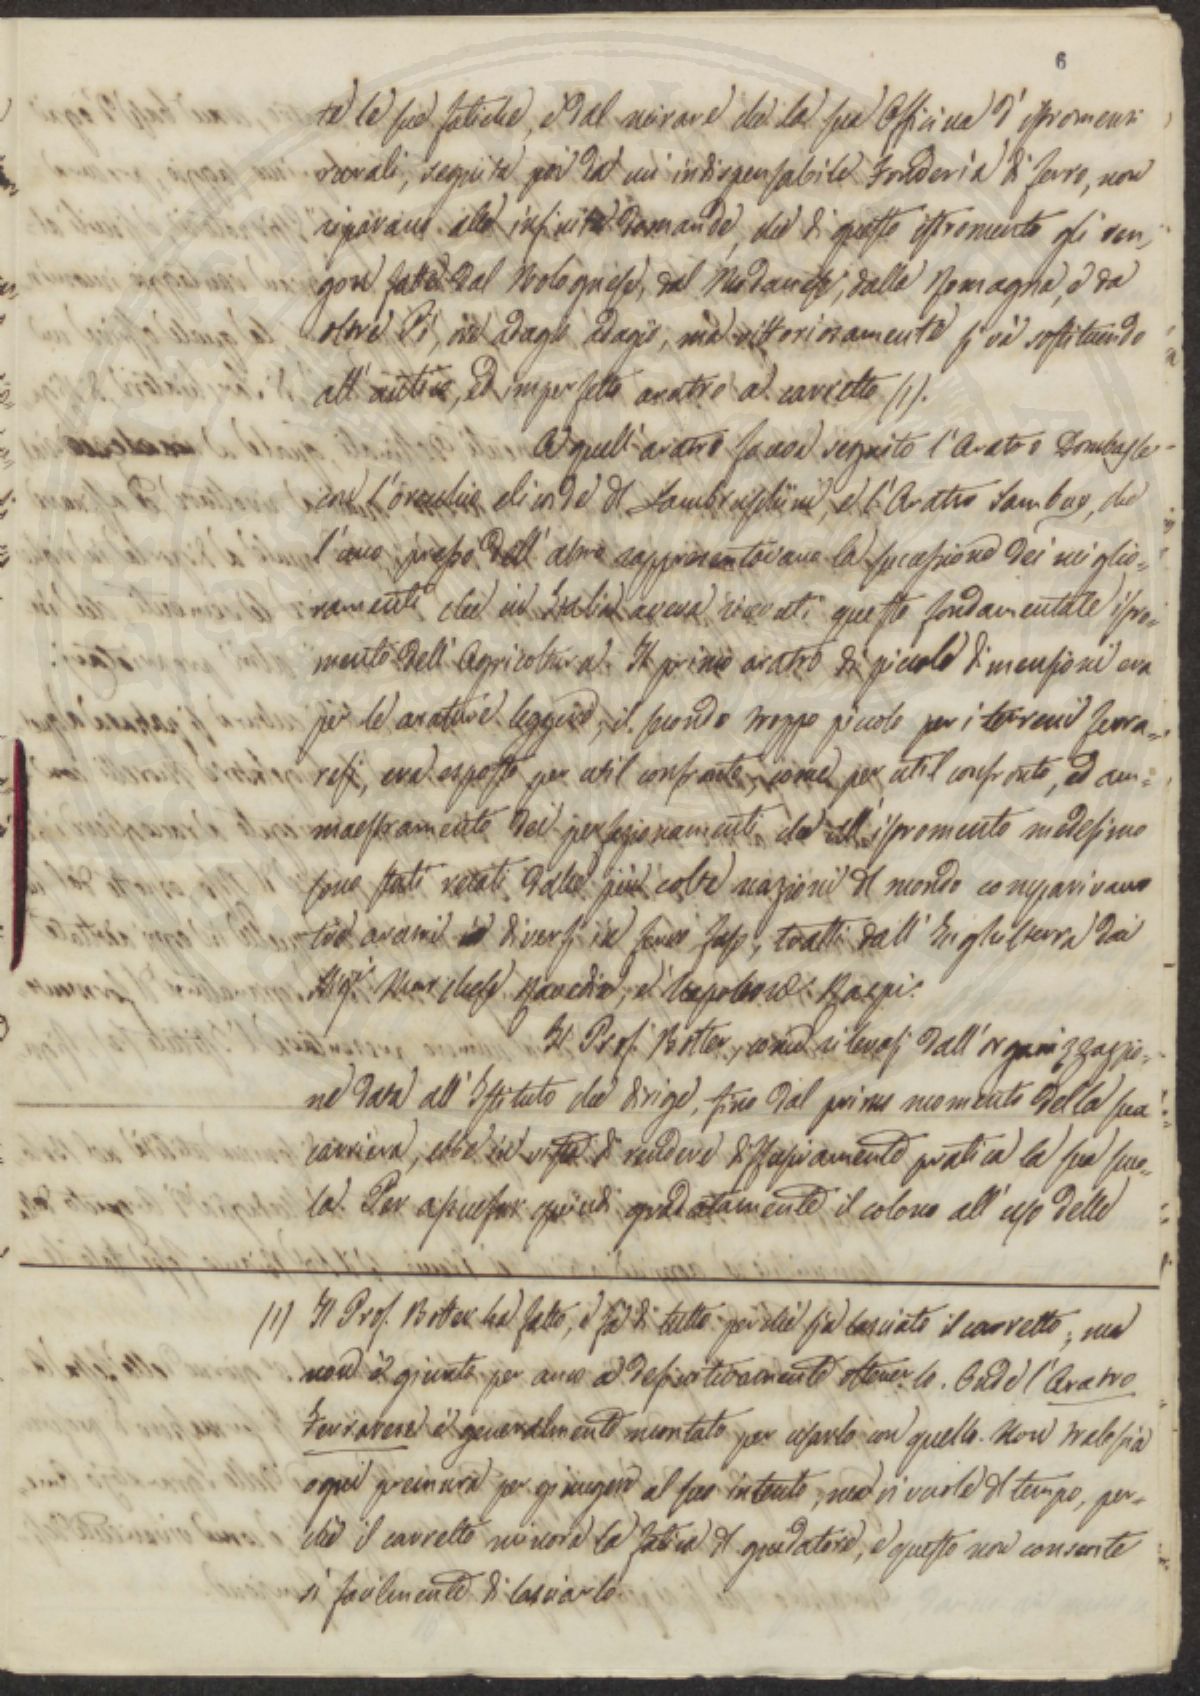 6
te le sue fatiche, e dal mirare che la sua Officina d'istromenti
rurali, seguita poi da un'indispensabile Fonderia di ferro, non
riparano alle infinite domande, che di questo istromento gli ven-
gon fatte dal Bolognese, dal Modanese, dalla Romagna, e da
oltre Pò, ove adagio adagio, ma vittoriosamente si và sostituendo
all' antico, ed imperfetto aratro a carretto (1).
A quell' aratro faceva seguito l'Aratro Dombasle
con l'orecchio elicoide di Lambruschini, e l'Aratro Sambuy, che
l'uno presso dell' altro rappresentavano la successione dei miglio-
ramenti che in Italia aveva ricevuti questo fondamentale istro-
mento dell' Agricoltura. Il primo aratro di piccole dimensioni era
per le arature leggere, il secondo troppo piccolo per i terreni ferra-
resi, era esposto per util confronto, come per util confronto, ed am-
maestramento dei perfezionamenti che all' istromento medesimo
sono stati recati dalle più colte nazioni del mondo comparivano
tre aratri diversi in ferro fuso, tratti dall' Inghilterra dai
Sigri Marchese Ravedin, e Napoleone
Il Prof. Botter, come rilevasi dall' organizzazio-
ne data all' Istituto che dirige, fino dal primo momento della sua
carriera, ebbe in vista di rendere diffusivamente pratica la sua scuo-
la. Per assuefar quindi gradatamente il colono all' uso delle
(1) Il Prof. Botter ha fatto, e fà di tutto perchè sia lasciato il carretto, ma
non è giunto per anco a definitivamente ottenerlo. Onde l'Aratro
Ferrarese è generalmente montato per usarlo con quello. Non tralascia
ogni premura per giungere al suo intento, ma vi vuole del tempo, per-
chè il carretto minora la fatica del guidatore, e questo non consente
sì facilmente di lasciarlo.